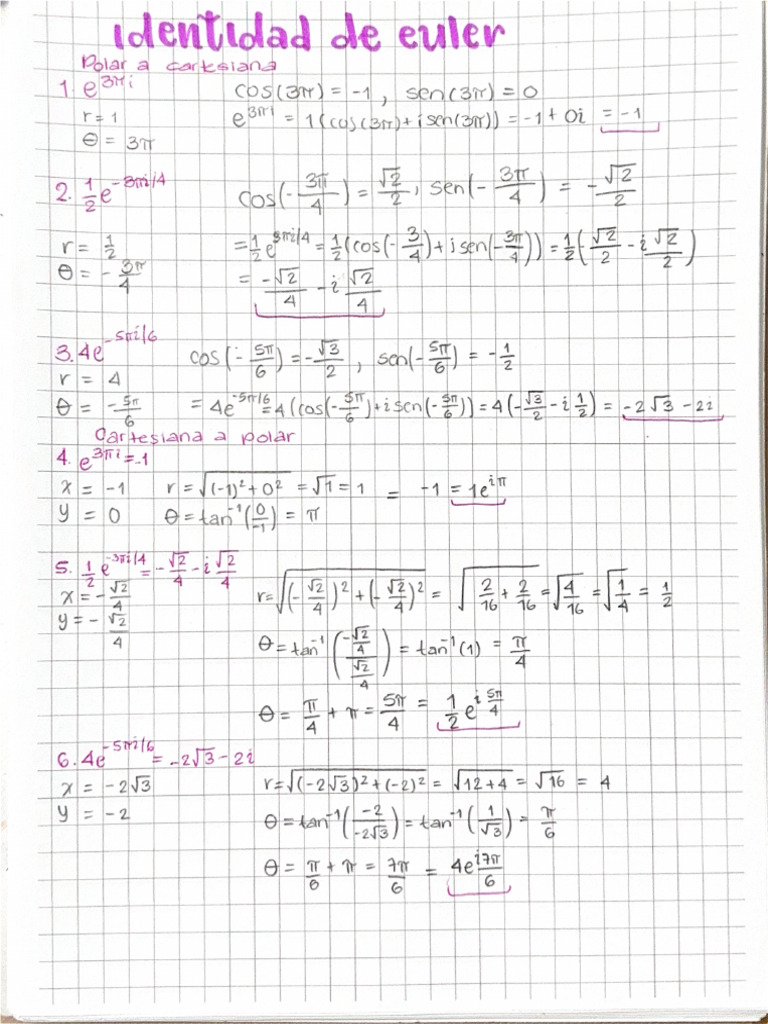 identidad de euler
Polar a cartesiana
1. e^{3πi} cos(3π) = -1 , sen(3π) = 0
r = 1 e^{3πi} = 1(cos(3π)+i sen(3π)) = -1 + 0i = -1
θ = 3π
2. \frac{1}{2}e^{-3πi/4} cos(-\frac{3π}{4}) = \frac{√2}{2}, sen(-\frac{3π}{4}) = -\frac{√2}{2}
r = \frac{1}{2} = \frac{1}{2}e^{3πi/4} = \frac{1}{2}(cos(-\frac{3}{4})+i sen(-\frac{3π}{4})) = \frac{1}{2}(-\frac{√2}{2} - i\frac{√2}{2})
θ = -\frac{3π}{4} = \frac{-√2}{4} - i\frac{√2}{4}
3. 4e^{-5πi/6} cos(-\frac{5π}{6}) = -\frac{√3}{2}, sen(-\frac{5π}{6}) = -\frac{1}{2}
r = 4
θ = -\frac{5π}{6} = 4e^{-5πi/6} = 4(cos(-\frac{5π}{6})+i sen(-\frac{5π}{6})) = 4(-\frac{√3}{2} - i\frac{1}{2}) = -2√3 - 2i
Cartesiana a polar
4. e^{3πi} = -1
x = -1 r = √((-1)²+0²) = √1 = 1 = -1 = 1e^{iπ}
y = 0 θ = tan^{-1}(\frac{0}{-1}) = π
5. \frac{1}{2}e^{-3πi/4} = -\frac{√2}{4} - i\frac{√2}{4}
x = -\frac{√2}{4} r = √((-\frac{√2}{4})²+(-\frac{√2}{4})²) = √(\frac{2}{16}+\frac{2}{16}) = √\frac{4}{16} = √\frac{1}{4} = \frac{1}{2}
y = -\frac{√2}{4}
θ = tan^{-1}(\frac{-\frac{√2}{4}}{\frac{√2}{4}}) = tan^{-1}(1) = \frac{π}{4}
θ = \frac{π}{4} + π = \frac{5π}{4} = \frac{1}{2}e^{i\frac{5π}{4}}
6. 4e^{-5πi/6} = -2√3 - 2i
x = -2√3 r = √((-2√3)²+(-2)²) = √(12+4) = √16 = 4
y = -2 θ = tan^{-1}(\frac{-2}{-2√3}) = tan^{-1}(\frac{1}{√3}) = \frac{π}{6}
θ = \frac{π}{6} + π = \frac{7π}{6} = 4e^{i\frac{7π}{6}}